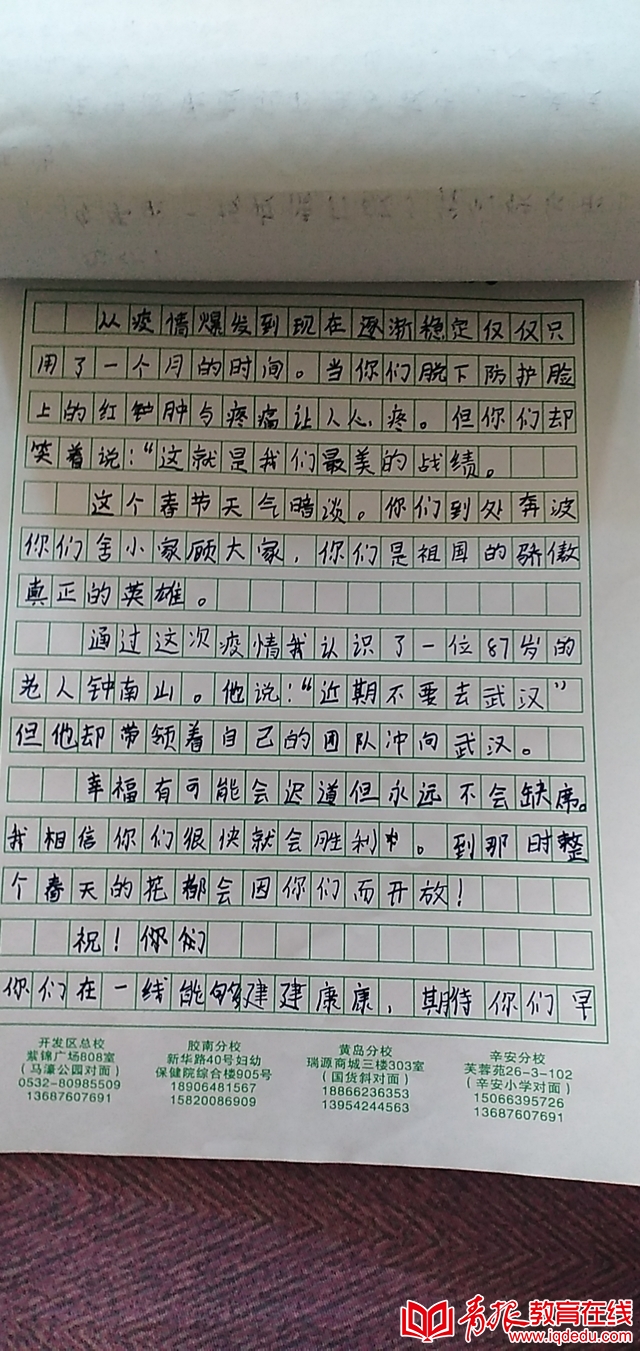 从疫情爆发到现在逐渐稳定仅仅只
用了一个月的时间。当你们脱下防护脸
上的红肿与疼痛让人心疼。但你们却
笑着说:“这就是我们最美的战绩。
这个春节天气暗谈。你们到处奔波
你们舍小家顾大家,你们是祖国的骄傲
真正的英雄。
通过这次疫情我认识了一位87岁的
老人钟南山。他说:“近期不要去武汉”
但他却带领着自己的团队冲向武汉。
幸福有可能会迟道但永远不会缺席。
我相信你们很快就会胜利。到那时整
个春天的花都会因你们而开放!
祝!你们
你们在一线能够建建康康,期待你们早
开发区总校
紫锦广场808室
(马濠公园对面)
0532-80985509
13687607691
胶南分校
新华路40号妇幼
保健院综合楼905号
18906481567
15820086909
黄岛分校
瑞源商城三楼303室
(国货斜对面)
18866236353
13954244563
辛安分校
芙蓉苑26-3-102
(辛安小学对面)
15066395726
13687607691
青报教育在线
www.iqdedu.com